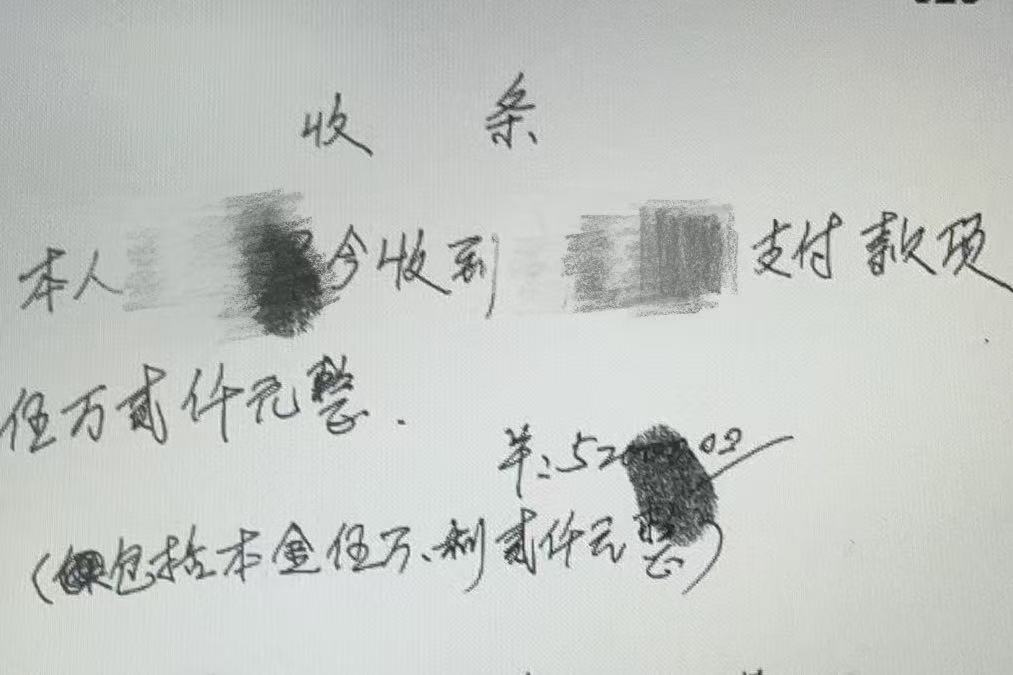 收 条
本人 今收到 支付款项
伍万贰仟元整.
¥:52 00
(包括本金伍万、利贰仟元整)